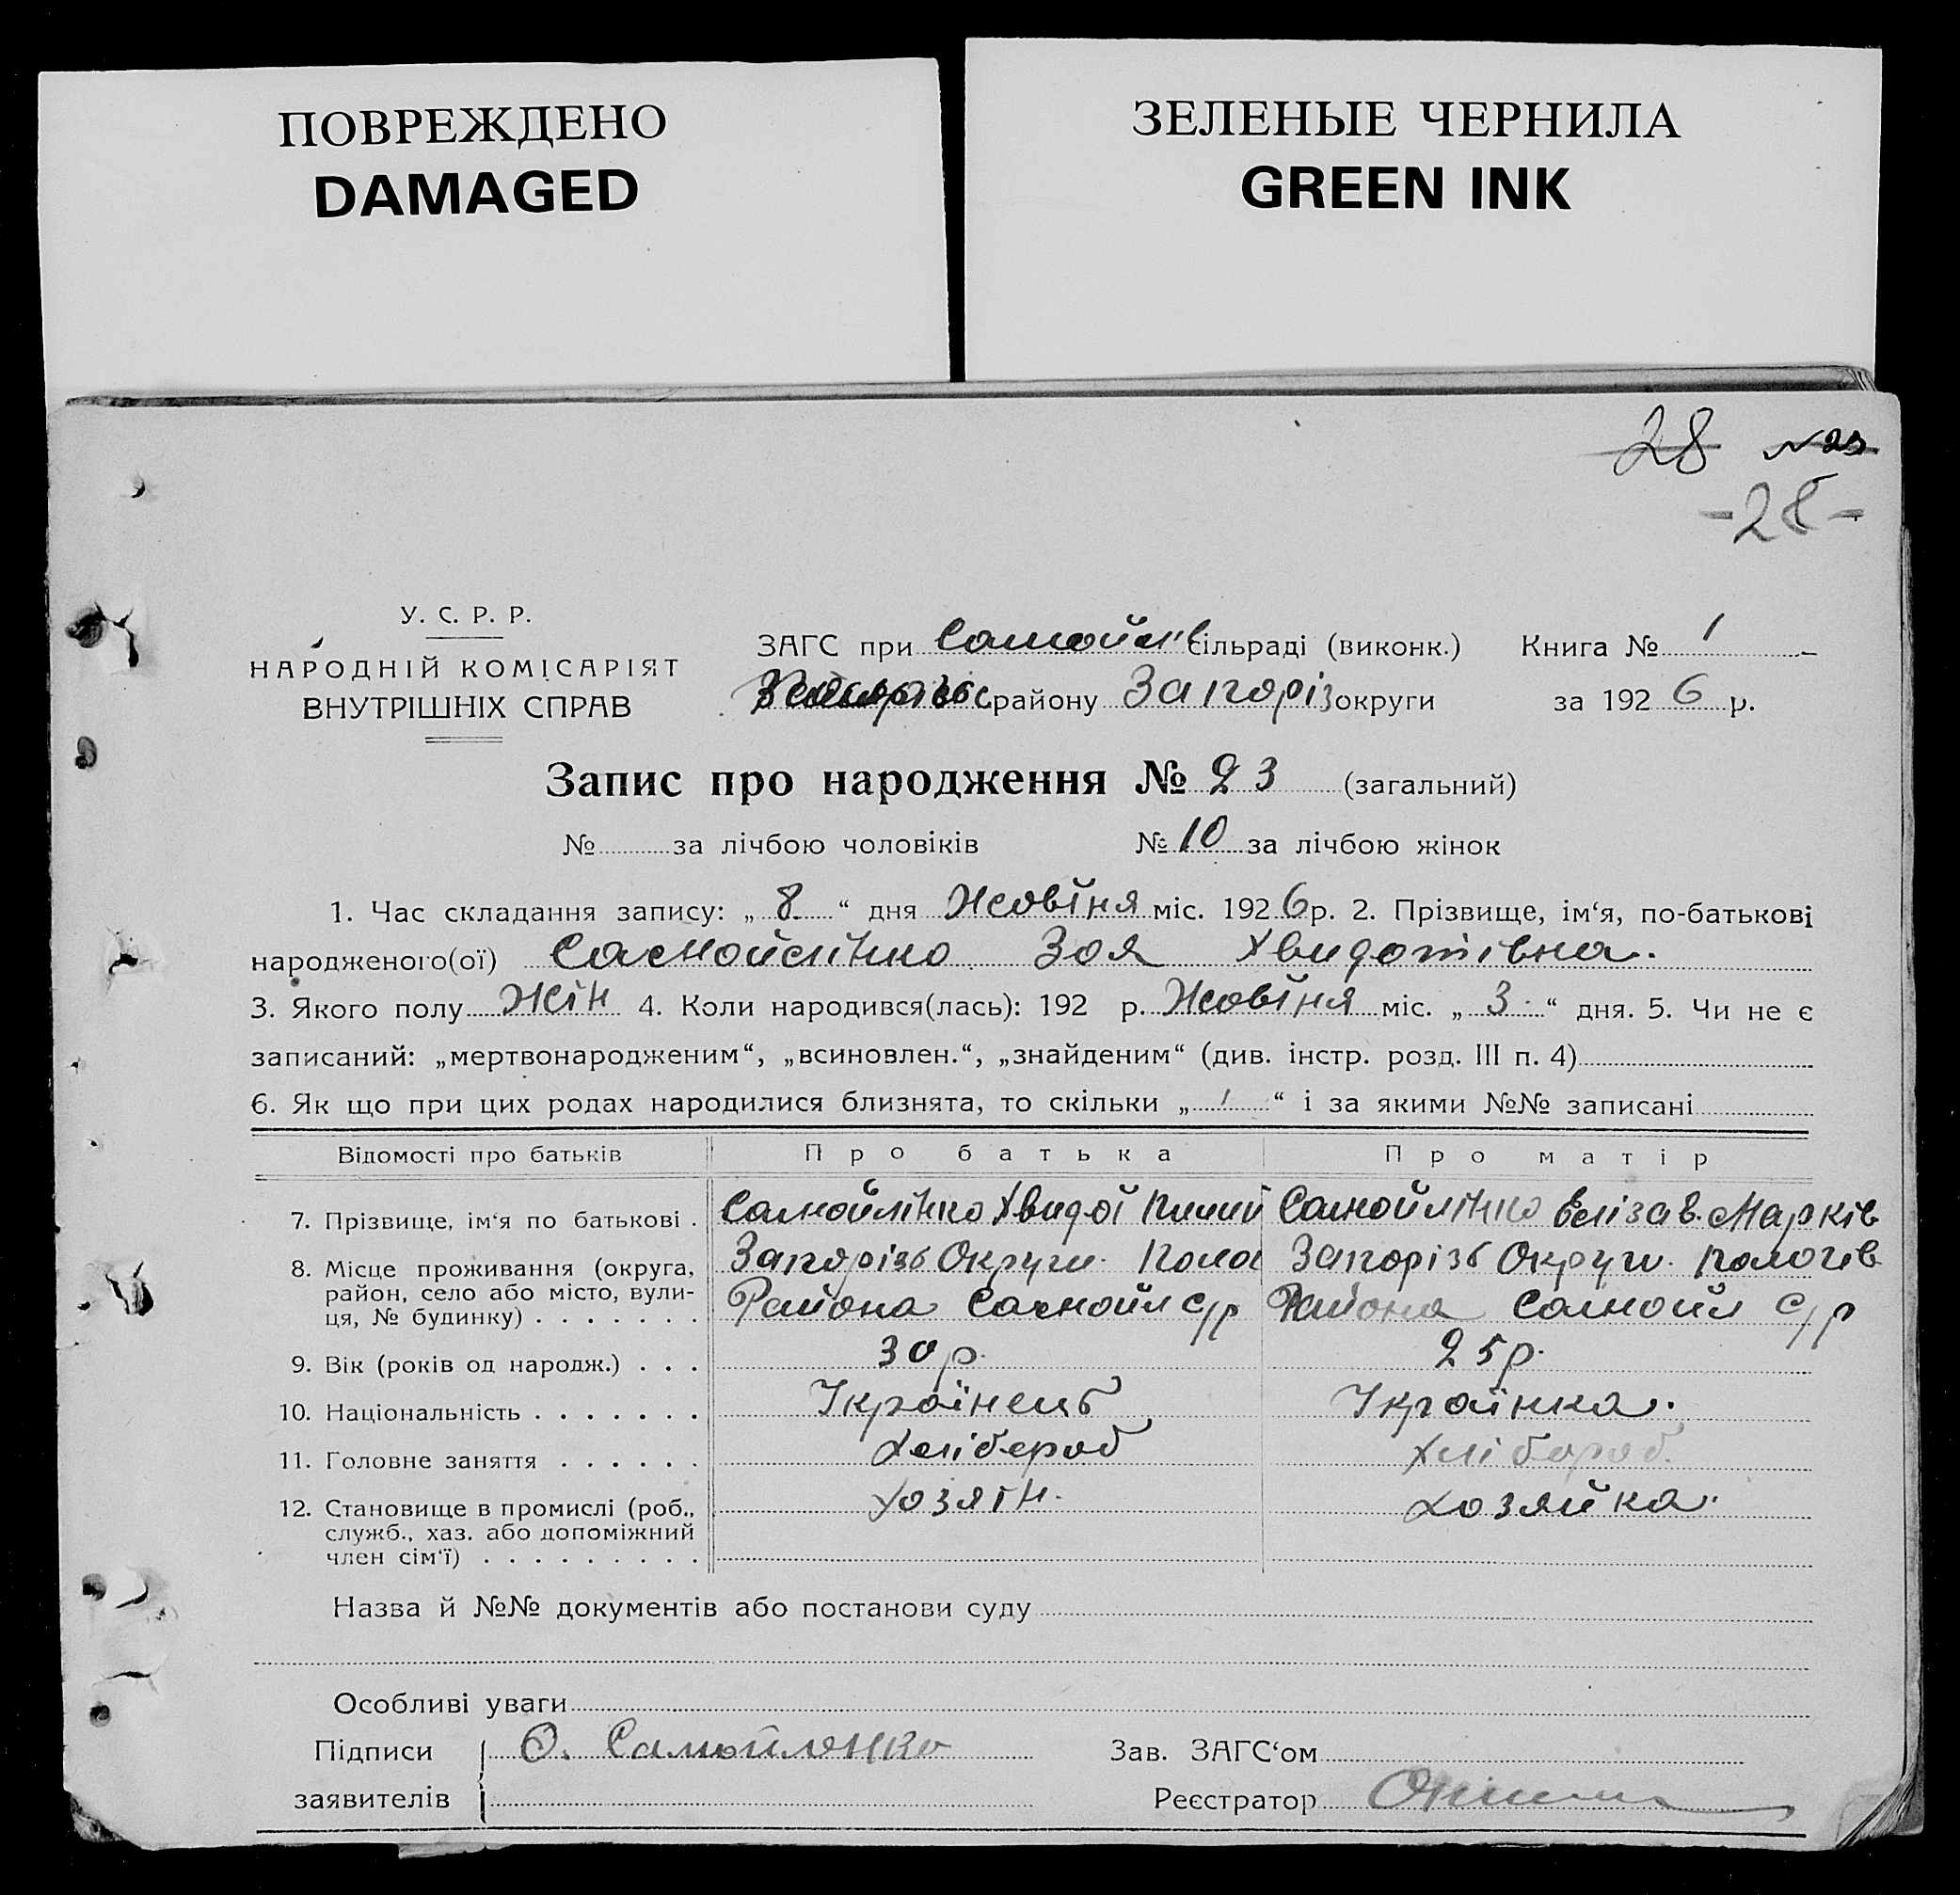 ПОВРЕЖДЕНО
DAMAGED
ЗЕЛЕНЫЕ ЧЕРНИЛА
GREEN INK
28 №23
-28-
У. С. Р. Р.
НАРОДНІЙ КОМІСАРІЯТ
ВНУТРІШНІХ СПРАВ
ЗАГС при Самойл сільраді (виконк.) Книга № 1
району Запоріз округи за 1926 р.
Запис про народження № 23 (загальний)
№ за лічбою чоловіків № 10 за лічбою жінок
1. Час складання запису: „ 8 “ дня Жовтня міс. 1926 р. 2. Прізвище, ім‘я, по-батькові
народженого(ої) Самойлінко Зоя Хвидотівна.
3. Якого полу Жін 4. Коли народився(лась): 192 р. Жовтня міс. „ 3 “ дня. 5. Чи не є
записаний: „мертвонародженим“, „всиновлен.“, „знайденим“ (див. інстр. розд. III п. 4)
6. Як що при цих родах народилися близнята, то скільки „ 1 “ і за якими №№ записані
Відомості про батьків Про батька Про матір
7. Прізвище, ім‘я по батькові . Самойлінко Хвидот Самойлінко Елізав. Марків
8. Місце проживання (округа, район, село або місто, вулиця, № будинку) . . . . . . . Запорізь Округи. Полог Запорізь Округи. Пологів
Района Самойл с/р Района Самойл с/р
9. Вік (років од народж.) . . . 30 р. 25 р.
10. Національність . . . . . . . Українець Українка.
11. Головне заняття . . . . . . Хлібероб Хлібороб.
12. Становище в промислі (роб., служб., хаз. або допоміжний член сім‘ї) . . . . . . . . . Хозяїн. Хозяйка.
Назва й №№ документів або постанови суду
Особливі уваги
Підписи Ѳ. Самойленко Зав. ЗАГС‘ом
заявителів Реєстратор